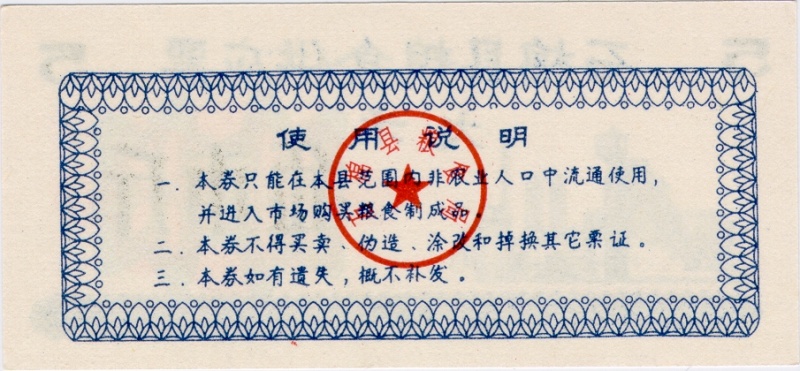 使用说明
一．本券只能在本县范围内非农业人口中流通使用，
并进入市场购买粮食制成品。
二．本券不得买卖、伪造、涂改和掉换其它票证。
三．本券如有遗失，概不补发。
县粮食局